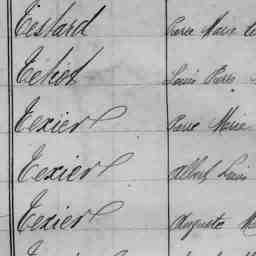 Testard Pierre Marie
Tétiot Louis Pierre
Texier Pierre Marie
Texier Albert Louis
Texier Auguste M